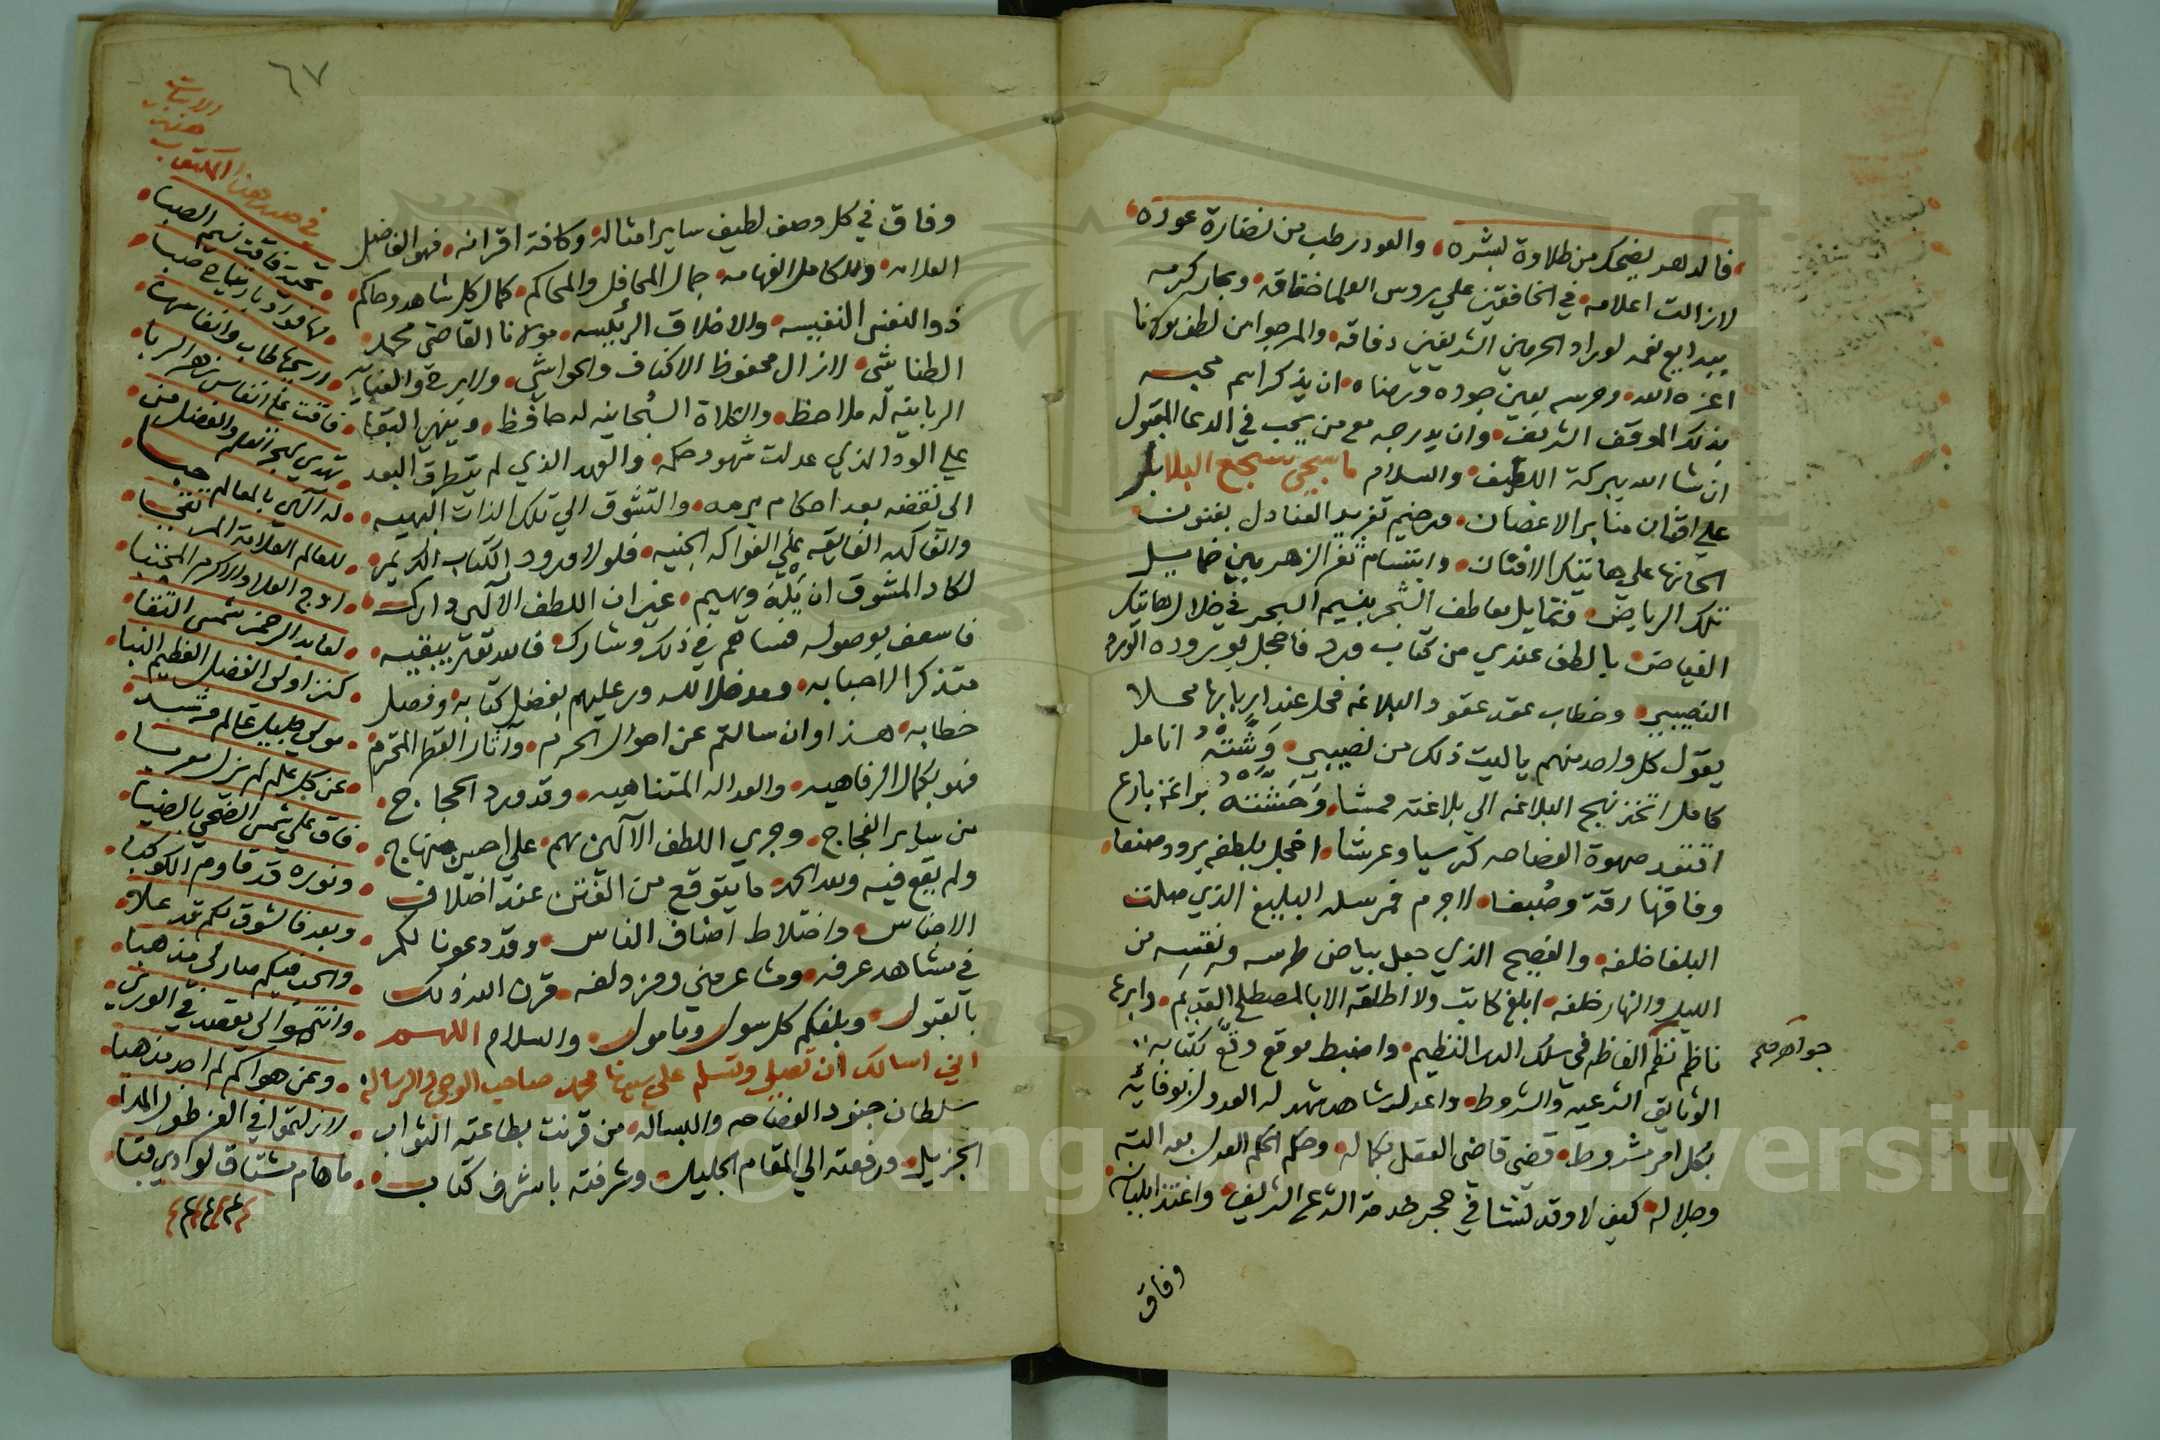 فالدهر يضحك من طلاوة بشره والعود رطب من نضارة عوده
لازالت اعلامه في الخافقين علي روس العلما خفاقه وبحار كرمه
ببدايع نعمه لوراد الحرمين الشريفين دفاقه والمرجوا من لطف مولانا
اعزه الله وحرسه بعين جوده ورضاه ان يذكر اسم محبه
بذلك الموقف الشريف وان يدرجه مع من يجب في الدعا المقبول
ان شا الله ببركة اللطيف والسلام ما سجي سجع البلابل
علي افنان منابر الاغصان ورخيم تغريد العنادل بفنون
الحانها علي هاتيك الافنان وابتسام ثغر الزهر بين خمايل
تلك الرياض وتمايل معاطف الشجر بنسيم السحر في خلال هاتيك
الغياض بالطف عندي من كتاب ورد فاخجل بوروده الورد
النصيبي وخطاب عقد عقود البلاغه فحل عند اربابها محلا
يقول كل واحد منهم ياليت ذلك من نصيبي وشته انامل
كامل اتخذ نهج البلاغه الي بلاغته ممشا وحشته براعة بارع
اقتعد صهوة الفصاحه كرسيا وعرشا اخجل بلطفه برود صنعا
وفاقها رقة وصنعا لاجرم فمرسله البليغ الذي صلت
البلغا خلفه والفصيح الذي جعل بياض طرسه ونقسه من
الليل والنهار خلفه ابلغ كاتب ولا اطلقه الا بالمصطلح القديم وابرع
ناظم نظم الفاظه في سلك الدر النظيم واضبط موقع وقع كتابه
جواهر حكم
الوثايق الشرعيه والشروط واعدل شاهد شهد له العدول بوفائه
بكل امر مشروط قضي قاضي العقل بكماله وحكم الحكم العدل بعدالته
وجلاله كيف لا وقد نشا في حجر خدمة الشرع الشريف واغتذا بلبانه
وفاق
٦٧
الابيات
هذه
في صدر هذا المكتوب
وفاق في كل وصف لطيف ساير امثاله وكافة اقرانه فهو الفاضل
العلامه والكامل الفهامه جمال المحافل والمحاكم كمال كل شاهد وحاكم
ذو النفس النفيسه والاخلاق الرئيسه مولانا القاضي محمد
الطناشي لازال محفوظ الاكناف والحواشي ولابرحت العنايه
الربانيه له ملاحظ والكلاة السبحانيه له حافظ وينهي البقا
علي الود الذي عدلت شهود حكمه والعهد الذي لم يتطرق البعد
الى نقضه بعد احكام برمه والتشوق الي تلك الذات البهيه
والفاكهه الفايقه علي الفواكه الجنيه فلولا ورود الكتاب الكريم
لكاد المشوق ان يله ويهيم غير ان اللطف الآلهي دارك
فاسعف بوصوله فساهم في ذلك وشارك فالعد تقتر ببقيه
متذكر الاحبابه وعلهم بفضل كتابه وفصل
خطابه هذا وان سالتم عن احوال الحرم وآثار القطر المحترم
فهو بكمال الرفاهيه والعداله المتناهيه وقد ورد الحجاج
من ساير الفجاج وجري اللطف الالهي بهم علي احسن منهاج
ولم يقع فيه وبعد الحمد ما يتوقع من الفتن عند اختلاف
الاجناس واختلاط اصناف الناس وقد دعونا لكم
في مشاهد عرفه ومشاعر مني ومزدلفه قرن الله ذلك
بالقبول وبلغكم كل سول ومامول والسلام اللهم
اني اسالك ان تصلي وتسلم علي سيدنا محمد صاحب الوحي والرساله
سلطان جنود الفصاحه والبساله من قرنت بطاعته الثواب
الجزيل ورفعته الي المقام الجليل وشرفته باشرف كتاب
تحية فاقت نسيم الصبا
ما فوّد بارياح صبا
اريجها طاب وانفاسها
فاقت علي انفاس زهر الربا
تهدي لبحر العلم والفضل من
له الهي بالمعالم حبا
للعالم العلامة المرتجا
اوج العلا والاكرم المجتبا
لعابد الرحمن شمس التقا
كنز اولي الفضل العظيم النبا
مولي جليل عالم مرشد
عن كل علم لم يزل معربا
فاق علي شمس الضحي بالضيا
ونوره قد قاوم الكوكبا
وبعد فالشوق لكم قد علا
والحب فيكم صار لي مذهبا
وانتموا لي مقصد في الوري
وعن هواكم لم اجد مذهبا
لازلتموا في العز طول المدا
ما هام مشتاق لوادي قبا